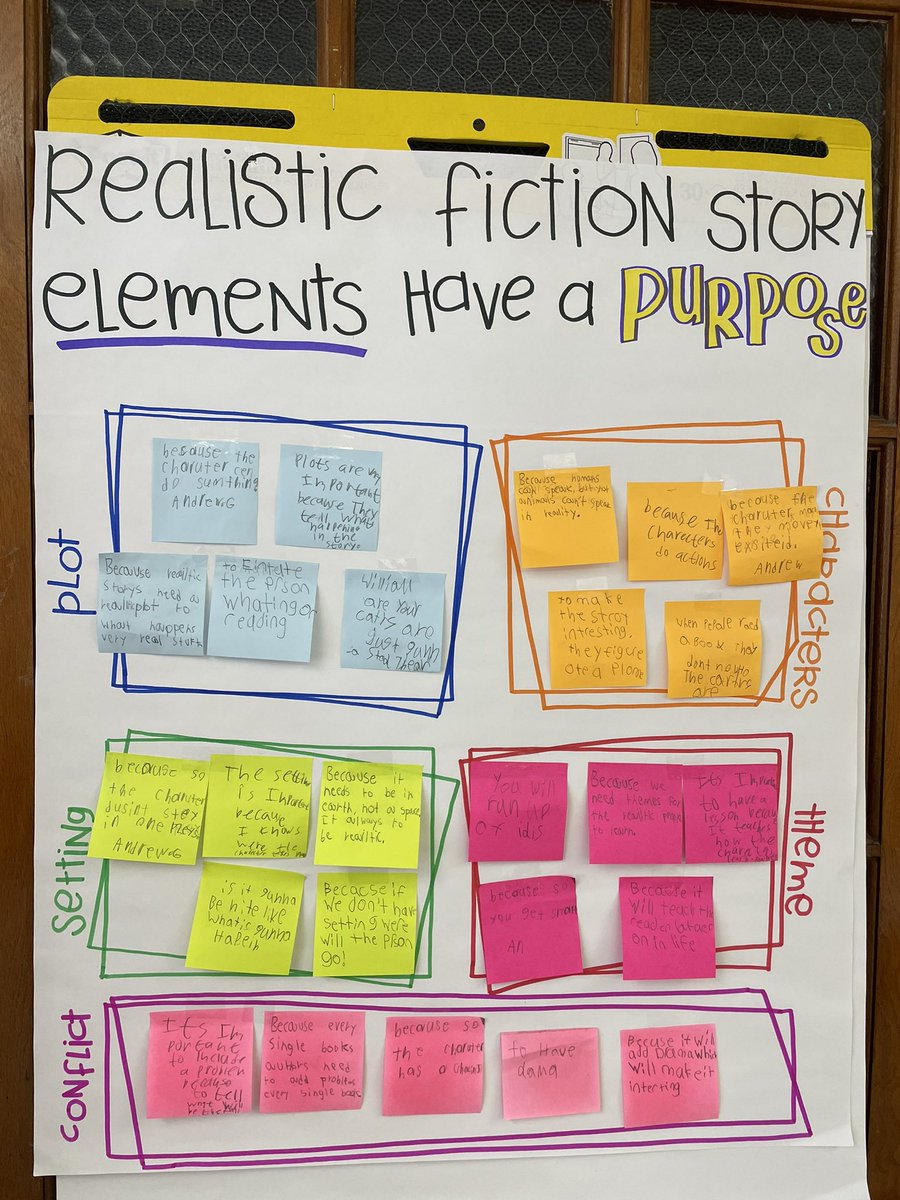 Realistic fiction story
elements Have a PURPOSE
Plot
because the
charuter cen
do sumthing
Andrew G
Plots are
Important
because They
tell what
happening
in the
story.
Because
storys need a
plot to
what happens
very real stuff
to
the prson
whating or
reading
are your
just gunn
Characters
Because humans
can speak, but
animals can't speak
in reality.
because the
characters
do actions
because the
charuter
they
Andrew
to make
the stroy
intresting.
they figure
ote a
when People raed
a Book They
dont no
The
are
Setting
because so
the charuter
dusint stey
in one
Andrew G
The setting
is Important
because
I knows
were the
Because it
needs to be in
earth, not on space
it always to
be realitic.
is it gunna
Be nite like
what is gunna
Because if
we don't have
setting were
will the prson
go!
Theme
You will
run up
of idis
Because we
need themes for
the realitic
to learn.
It's
to have a
lesson
It teachs
how the
because so
you get smart
An
Because it
will teach the
reader
on in life
Conflict
It's Im
portant
to include
a problem
to tell
Because every
single books
authors need
to add problems
every single
because so
the charuter
has a
to Have
dama
it will
add Drama which
will make it
interting